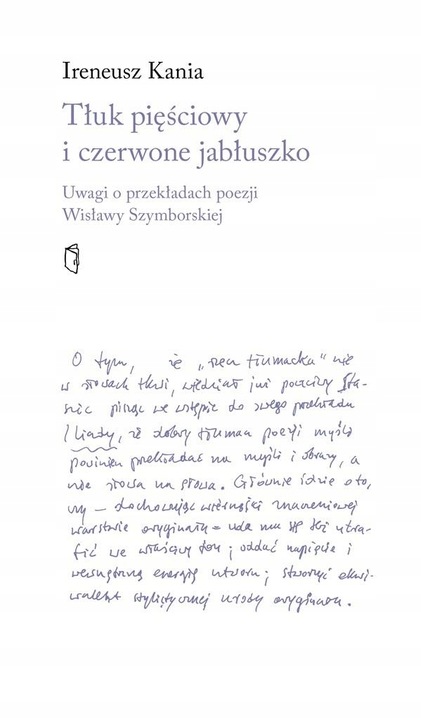 Ireneusz Kania
Tłuk pięściowy
i czerwone jabłuszko
Uwagi o przekładach poezji
Wisławy Szymborskiej
O tym, że „rzecz tłumacka” nie
w słowach tkwi, wiedział już poczciwy Sta-
szic pisząc we wstępie do swego przekładu
Iliady, iż dobry tłumacz poezji myślą
powinien przekładać na myśli i obrazy, a
nie słowa na słowa. Głównie idzie o to,
czy – dochowując wierności znaczeniowej
warstwie oryginału – uda mu się też utra-
fić we właściwy ton; oddać napięcie i
wewnętrzną energię utworu; stworzyć ekwi-
walent stylistycznej urody oryginału.